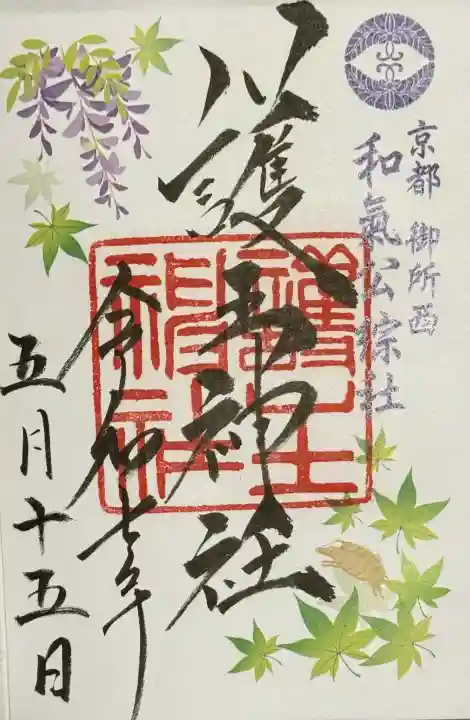 京都 御所西
和氣公綜社
護王神社
護王
神社
令和七年
五月十五日